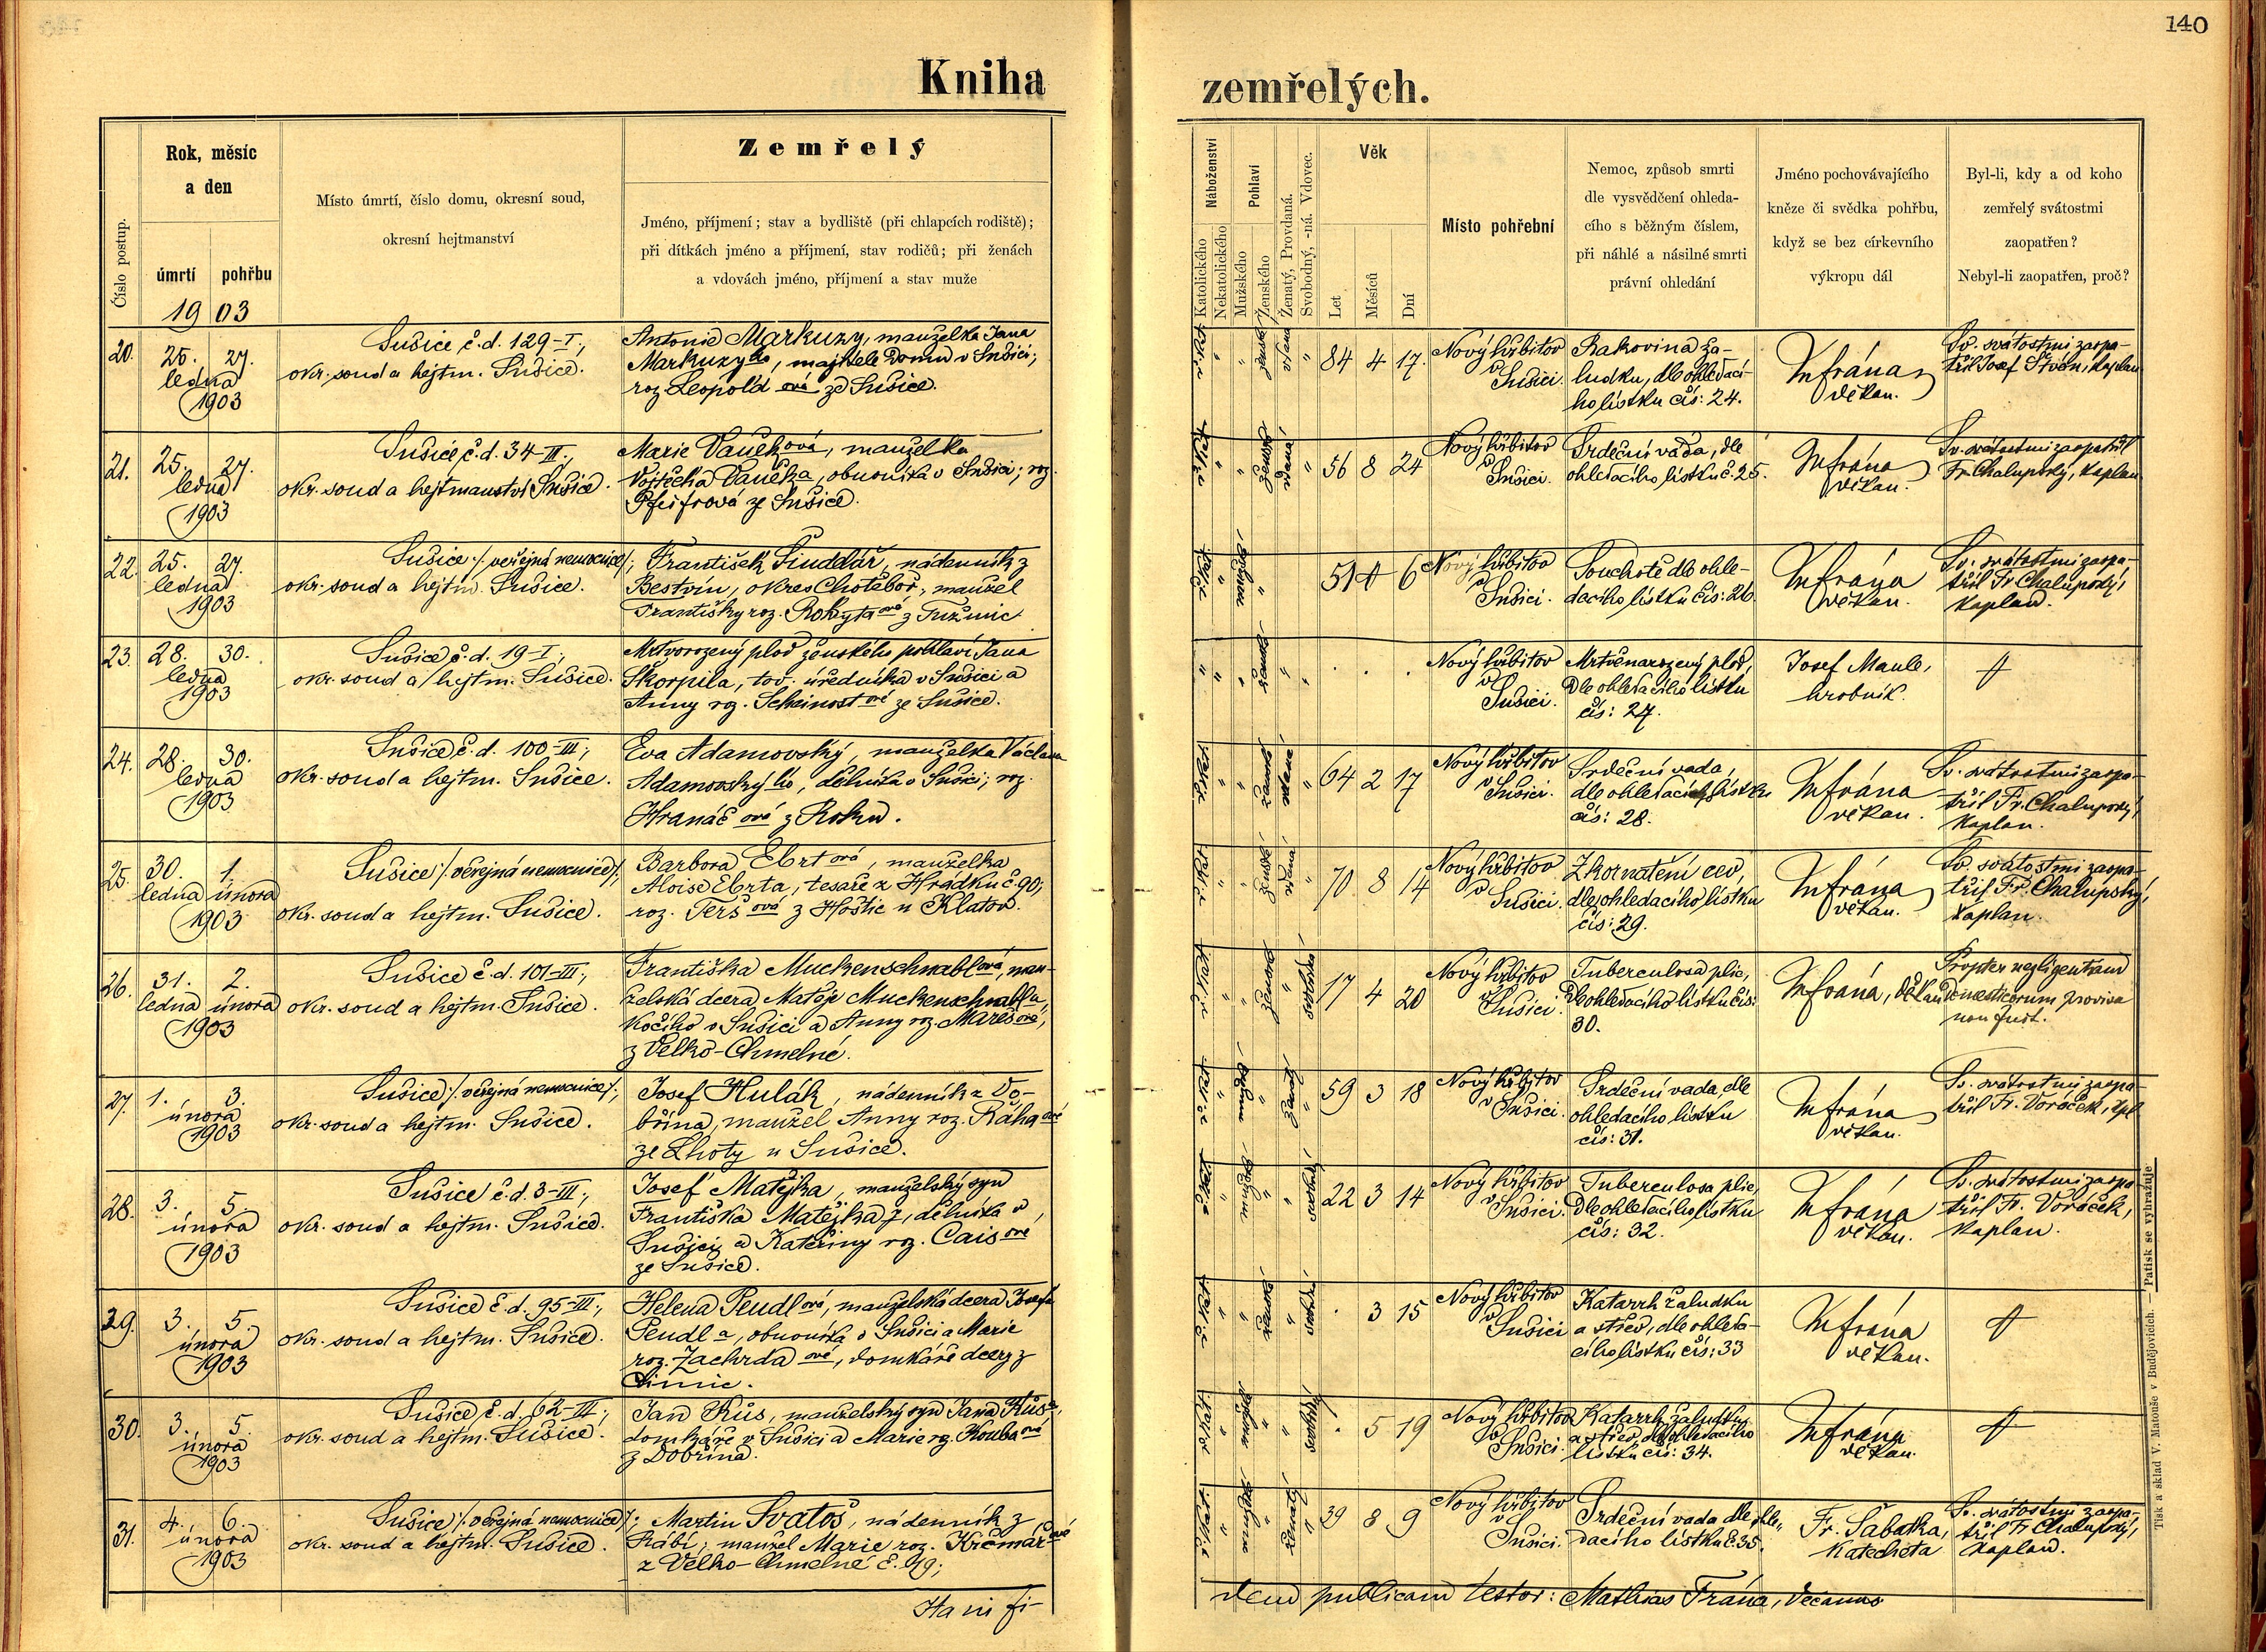 140
Kniha
zemřelých.
Číslo postup.
Rok, měsíc
a den
úmrtí
pohřbu
1903
Místo úmrtí, číslo domu, okresní soud,
okresní hejtmanství
Zemřelý
Jméno, příjmení; stav a bydliště (při chlapcích rodiště);
při dítkách jméno a příjmení, stav rodičů; při ženách
a vdovách jméno, příjmení a stav muže
Náboženství
Katolického
Nekatolického
Pohlaví
Mužského
Ženského
Ženatý, Provdaná.
Svobodný, -ná. Vdovec.
Věk
Let
Měsíců
Dní
Místo pohřební
Nemoc, způsob smrti
dle vysvědčení ohleda-
cího s běžným číslem,
při náhlé a násilné smrti
právní ohledání
Jméno pochovávajícího
kněze či svědka pohřbu,
když se bez církevního
výkropu dál
Byl-li, kdy a od koho
zemřelý svátostmi
zaopatřen?
Nebyl-li zaopatřen, proč?
20.
25. 27.
ledna
1903
Sušice č.d. 129-I;
okr. soud a hejtm. Sušice.
Antonie Markuzy, manželka Jana
Markuzyho, majitele domu v Sušici;
roz. Leopoldová ze Sušice.
84 4 17.
Nový hřbitov
v Sušici.
Rakovina ža-
ludku, dle ohledací-
ho lístku čís: 24.
M Frána
děkan.
Sv. svátostmi zaopa-
třil Josef kaplan
21.
25. 27.
ledna
1903
Sušice č.d. 34-III;
okr. soud a hejtmanství Sušice.
Marie Vaňková, manželka
Vojtěcha Vaňka, obuvníka v Sušici; roz.
Pfeifrová ze Sušice.
56 8 24
Nový hřbitov
v Sušici.
Srdeční vada, dle
ohledacího lístku č. 25.
M Frána
děkan.
Sv. svátostmi zaopatřil
Fr. Chalupský, kaplan
22.
25. 27.
ledna
1903
Sušice /: veřejná nemocnice :/;
okr. soud a hejtm. Sušice.
František nádenník z
Bestvin, okres Chotěboř, manžel
Františky roz. Rokytaové z
51 6
Nový hřbitov
v Sušici.
Souchotě dle ohle-
dacího lístku čís: 26.
M Frána
děkan.
Sv. svátostmi zaopa-
třil Fr Chalupský,
kaplan.
23.
28. 30.
ledna
1903
Sušice č.d. 19-I;
okr. soud a hejtm. Sušice.
Mrtvorozený plod ženského pohlaví Jana
Škorpila, tov. úředníka v Sušici a
Anny roz. Scheinostové ze Sušice.
Nový hřbitov
v Sušici.
Mrtvěnarozený plod,
dle ohledacího lístku
čís: 27.
Josef Maule,
hrobník.
24.
28. 30.
ledna
1903
Sušice č.d. 100-III;
okr. soud a hejtm. Sušice.
Eva Adamovský, manželka Václava
Adamovského, dělníka v Sušici; roz.
Hranáčová z Roku.
64 2 17
Nový hřbitov
v Sušici.
Srdeční vada,
dle ohledacího lístku
čís: 28.
M Frána
děkan.
Sv. svátostmi zaopa-
třil Fr. Chalupský,
kaplan.
25.
30. 1.
ledna února
1903
Sušice /: veřejná nemocnice :/;
okr. soud a hejtm. Sušice.
Barbora Ebrtová, manželka
Aloise Ebrta, tesaře z Hrádku č. 90;
roz. Teršová z Hoštic u Klatov.
70 8 14
Nový hřbitov
v Sušici.
Zkornatění cev,
dle ohledacího lístku
čís: 29.
M Frána
děkan.
Sv. svátostmi zaopa-
třil Fr. Chalupský,
kaplan.
26.
31. 2.
ledna února
1903
Sušice č.d. 101-III;
okr. soud a hejtm. Sušice.
Františka Muckenschnablová, man-
želská dcera Matěje Muckenschnabla,
kočího v Sušici a Anny roz. Marešové,
z Velko-Chmelné.
17 4 20
Nový hřbitov
v Sušici.
Tuberculosa plic,
dle ohledacího lístku čís:
30.
M Frána, děkan
Propter negligentiam
domesticorum provisa
non fuit.
27.
1. 3.
února
1903
Sušice /: veřejná nemocnice :/;
okr. soud a hejtm. Sušice.
Josef Hulák, nádenník z Do-
břína, manžel Anny roz. Ráhaové
ze Lhoty u Sušice.
59 3 18
Nový hřbitov
v Sušici.
Srdeční vada, dle
ohledacího lístku
čís: 31.
M Frána
děkan.
Sv. svátostmi zaopa-
třil Fr. Voráček, kpl
28.
3. 5.
února
1903
Sušice č.d. 3-III;
okr. soud a hejtm. Sušice.
Josef Matějka, manželský syn
Františka Matějka, dělníka v
Sušici a Kateřiny roz. Caisové
ze Sušice.
22 3 14
Nový hřbitov
v Sušici.
Tuberculosa plic,
dle ohledacího lístku
čís: 32.
M Frána
děkan.
Sv. svátostmi zaopa-
třil Fr. Voráček,
kaplan.
29.
3. 5.
února
1903
Sušice č.d. 95-III;
okr. soud a hejtm. Sušice.
Helena Pendlová, manželská dcera Josefa
Pendla, obuvníka v Sušici a Marie
roz. Zachrdaové, domkáře dcery z
3 15
Nový hřbitov
v Sušici
Katarrh žaludku
a střev, dle ohleda-
cího lístku čís: 33
M Frána
děkan.
30.
3. 5.
února
1903
Sušice č.d. 62-III;
okr. soud a hejtm. Sušice.
Jan Kůs, manželský syn Jana Kůsa,
domkáře v Sušici a Marie roz. Roubaové
z Dobřína.
5 19
Nový hřbitov
v Sušici.
Katarrh žaludku
a střev, dle ohledacího
lístku čís: 34.
M Frána
děkan.
31.
4. 6.
února
1903
Sušice /: veřejná nemocnice :/;
okr. soud a hejtm. Sušice.
Martin Svatoš, nádenník z
Rábí; manžel Marie roz. Krčmářové
z Velko-Chmelné č. 19;
39 8 9
Nový hřbitov
v Sušici.
Srdeční vada dle ohle-
dacího lístku č. 35.
Fr. Šabatka,
katecheta
Sv. svátostmi zaopa-
třil Fr Chalupský,
kaplan.
Ita in fi-
dem publicam testor: Mathias Frána, Decanus
Tisk a sklad V. Matouše v Budějovicích. — Patisk se vyhražuje